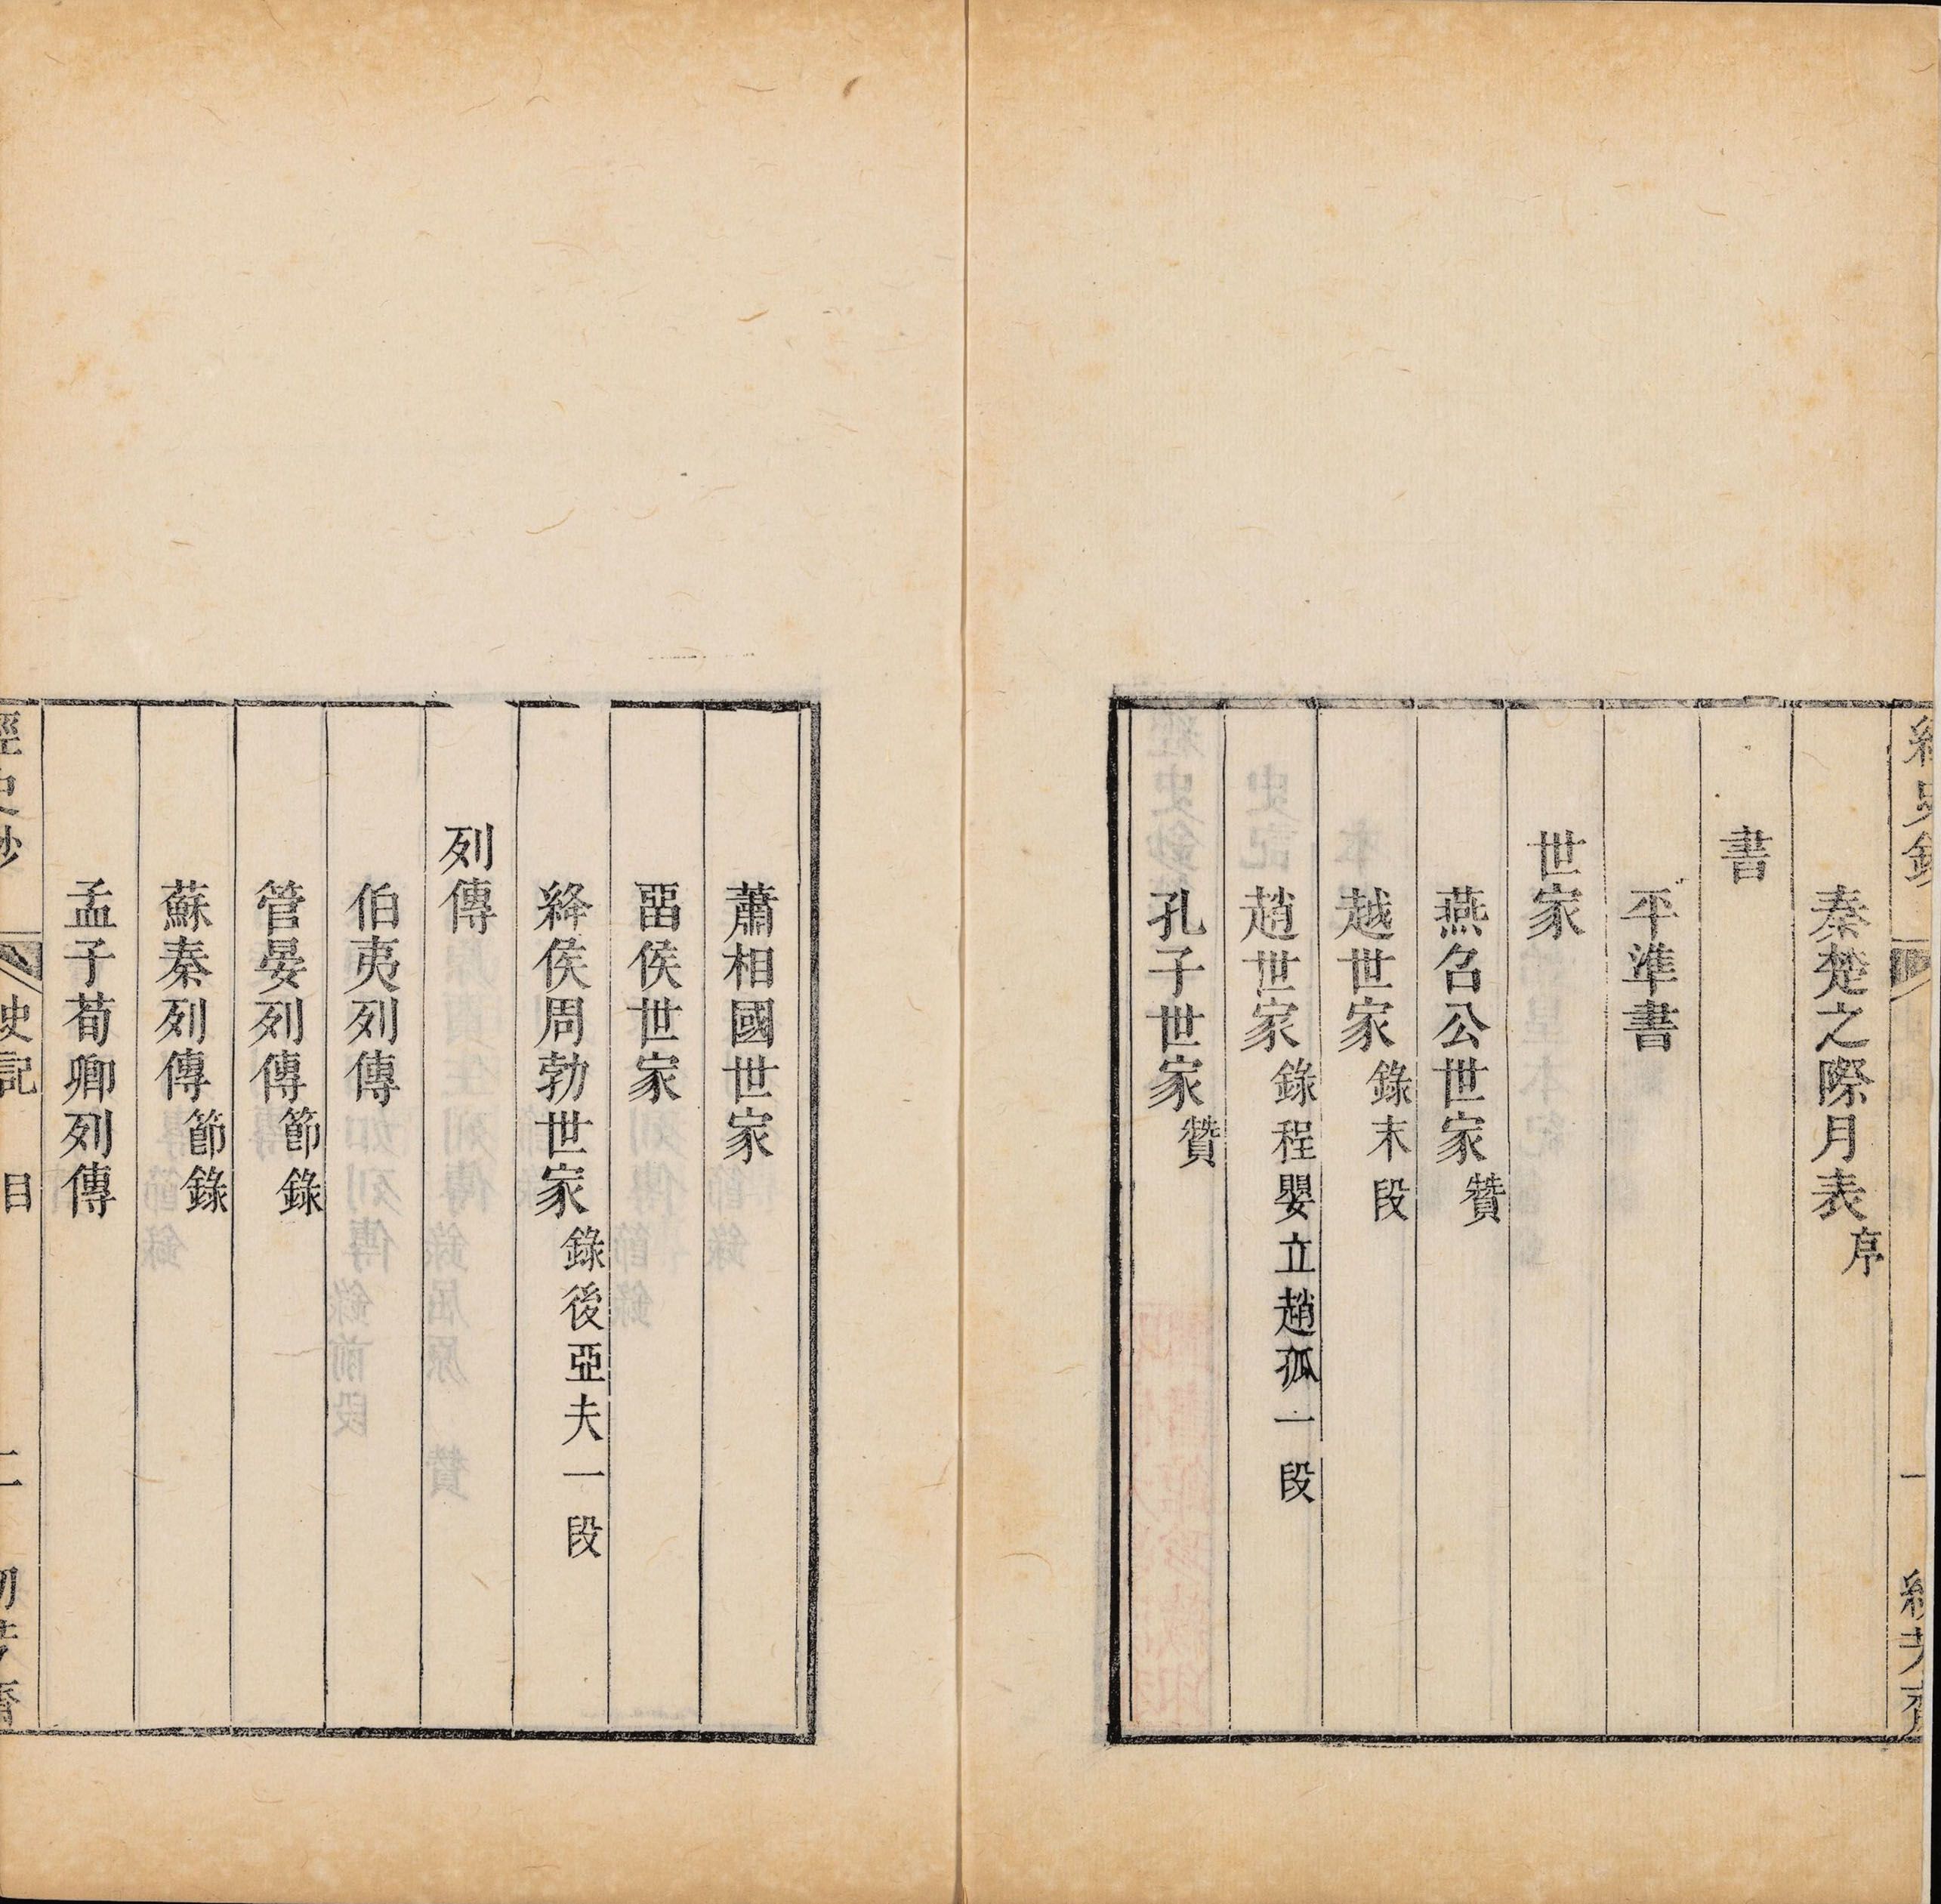 秦楚之際月表序
書
平準書
世家
燕召公世家贊
越世家錄末段
趙世家錄程嬰立趙孤一段
孔子世家贊
蕭相國世家
畱侯世家
絳侯周勃世家錄後亞夫一段
列傳
伯夷列傳
管晏列傳節錄
蘇秦列傳節錄
孟子荀卿列傳
經史鈔 史記 目 二